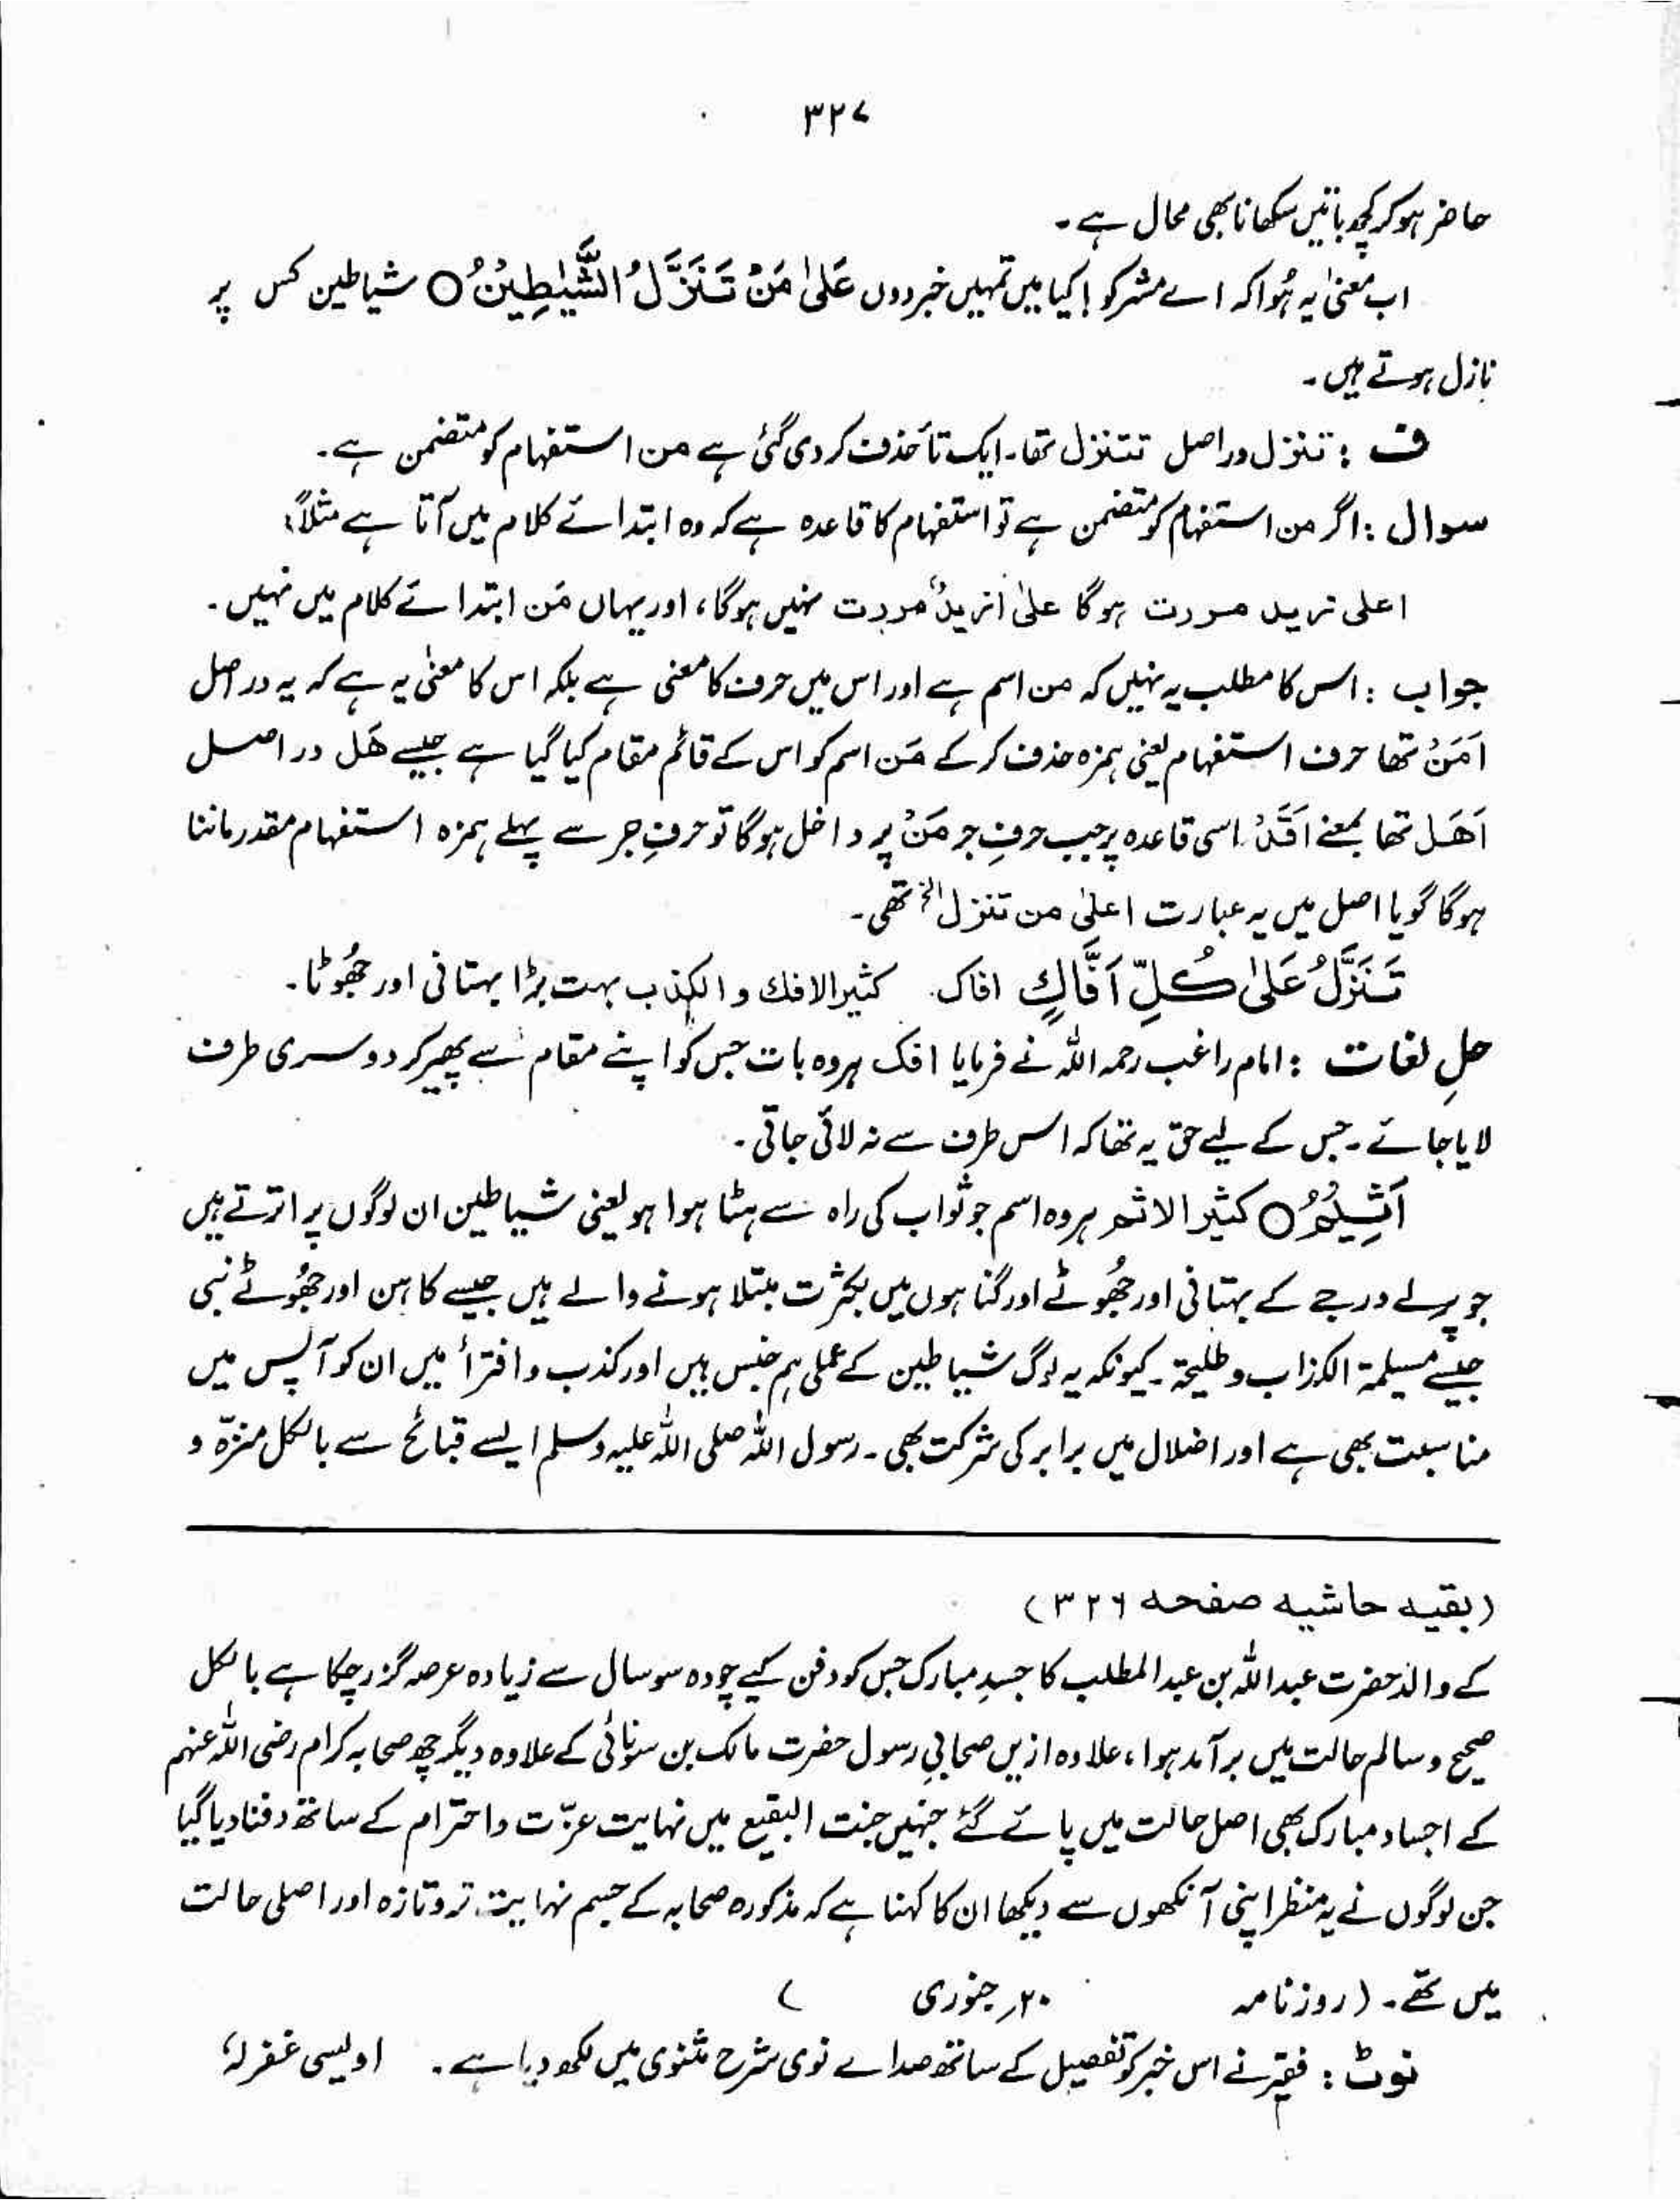 ۳۲۷
حاضر ہو کر کچھ باتیں سکھانا بھی محال ہے۔
اب معنیٰ یہ ہُوا کہ اے مشرکو! کیا میں تمہیں خبر دوں عَلیٰ مَنْ تَنَزَّلُ الشَّیٰطِیْنُ ○ شیاطین کس پر
نازل ہوتے ہیں۔
ف : تنزل دراصل تتنزل تھا۔ ایک تا حذف کر دی گئی ہے من استفہام کو متضمن ہے۔
سوال : اگر من استفہام کو متضمن ہے تو استفہام کا قاعدہ ہے کہ وہ ابتدائے کلام میں آتا ہے مثلاً؛
اعلی زید مررت ہوگا علیٰ ازیدٌ مررت نہیں ہوگا، اور یہاں مَن ابتدائے کلام میں نہیں۔
جواب : اس کا مطلب یہ نہیں کہ من اسم ہے اور اس میں حرف کا معنی ہے بلکہ اس کا معنیٰ یہ ہے کہ یہ دراصل
اَمَنْ تھا حرف استفہام یعنی ہمزہ حذف کر کے مَن اسم کو اس کے قائم مقام کیا گیا ہے جیسے ھَل در اصل
اَھَل تھا بمعنے اَقَدْ اسی قاعدہ پر جب حرفِ جر مَنْ پر داخل ہوگا تو حرفِ جر سے پہلے ہمزہ استفہام مقدر ماننا
ہوگا گویا اصل میں یہ عبارت اعلیٰ من تنزل الخ تھی۔
تَنَزَّلُ عَلیٰ کُلِّ اَفَّاكٍ افاک کثیر الافك و الکذب بہت بڑا بہتانی اور جھُوٹا۔
حلِ لغات : امام راغب رحمہ اللہ نے فرمایا افک ہر وہ بات جس کو اپنے مقام سے پھیر کر دوسری طرف
لایا جائے۔ جس کے لیے حق یہ تھا کہ اس طرف سے نہ لائی جاتی۔
اَثِیْمٍ ○ کثیر الاثم ہر وہ اسم جو ثواب کی راہ سے ہٹا ہوا ہو یعنی شیاطین ان لوگوں پر اترتے ہیں
جو پرلے درجے کے بہتانی اور جھُوٹے اور گناہوں میں بکثرت مبتلا ہونے والے ہیں جیسے کاہن اور جھُوٹے نبی
جیسے مسیلمۃ الکذاب و طلیحۃ۔ کیونکہ یہ لوگ شیاطین کے عملی ہم جنس ہیں اور کذب و افترأ میں ان کو آپس میں
مناسبت بھی ہے اور اضلال میں برابر کی شرکت بھی۔ رسول اللہ صلی اللہ علیہ وسلم ایسے قبائح سے بالکل منزّہ و
(بقیہ حاشیہ صفحہ ۳۲۶)
کے والد حضرت عبداللہ بن عبدالمطلب کا جسدِ مبارک جس کو دفن کیے چودہ سو سال سے زیادہ عرصہ گزر چکا ہے بالکل
صحیح و سالم حالت میں برآمد ہوا، علاوہ ازیں صحابیِ رسول حضرت مالک بن سونائی کے علاوہ دیگر چھ صحابہ کرام رضی اللہ عنہم
کے اجساد مبارک بھی اصل حالت میں پائے گئے جنہیں جنت البقیع میں نہایت عزّت و احترام کے ساتھ دفنا دیا گیا
جن لوگوں نے یہ منظر اپنی آنکھوں سے دیکھا ان کا کہنا ہے کہ مذکورہ صحابہ کے جسم نہایت تروتازہ اور اصلی حالت
میں تھے۔ (روزنامہ ۲۰ر جنوری )
نوٹ : فقیر نے اس خبر کو تفصیل کے ساتھ صدائے نوی شرح مثنوی میں لکھ دیا ہے۔ اویسی غفرلہٗ